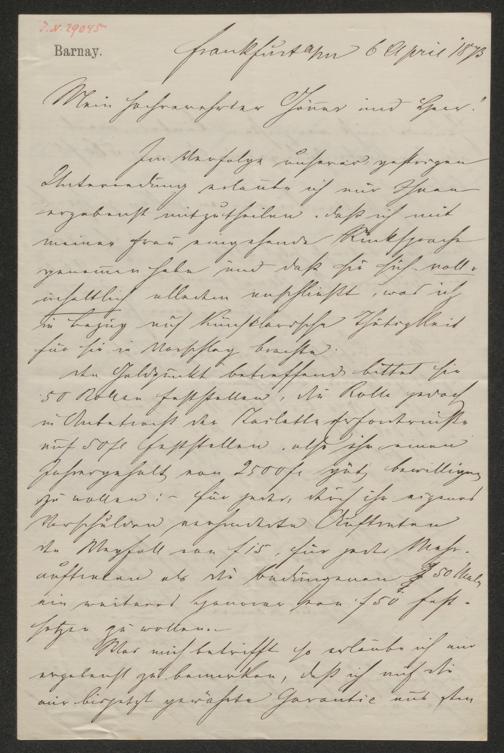 J.N. 29045
Barnay.
Frankfurt a/m 6 April 1873
Mein hochverehrter Gönner und Herr!
Im Verfolge unserer gestrigen
Unterredung erlaube ich mir Ihnen
ergebenst mitzutheilen, daß ich mit
meiner Frau eingehende Rücksprache
genommen habe und daß sie sich voll-
inhaltlich alledem anschließt, was ich
in bezug auf künstlerische Thätigkeit
für sie in Vorschlag brachte.
Den Geldpunkt betreffend bittet sie
50 Rollen feststellen, die Rolle jedoch
in Anbetracht der Toilette Erfordernisse
auf 50 fl feststellen, also ihr einen
Jahresgehalt von 2500 fl gütig bewilligen
zu wollen: – für jedes, durch ihr eigenes
Verschulden verhinderte Auftreten
den Wegfall von f 15, für jedes Mehr-
auftreten als die bedungenen 50 Male
ein weiteres Honorar von f 50 fest-
setzen zu wollen. –
Was mich betrifft so erlaube ich mir
ergebenst zu bemerken, daß ich auf die
mir bisjetzt gewährte Garantie aus